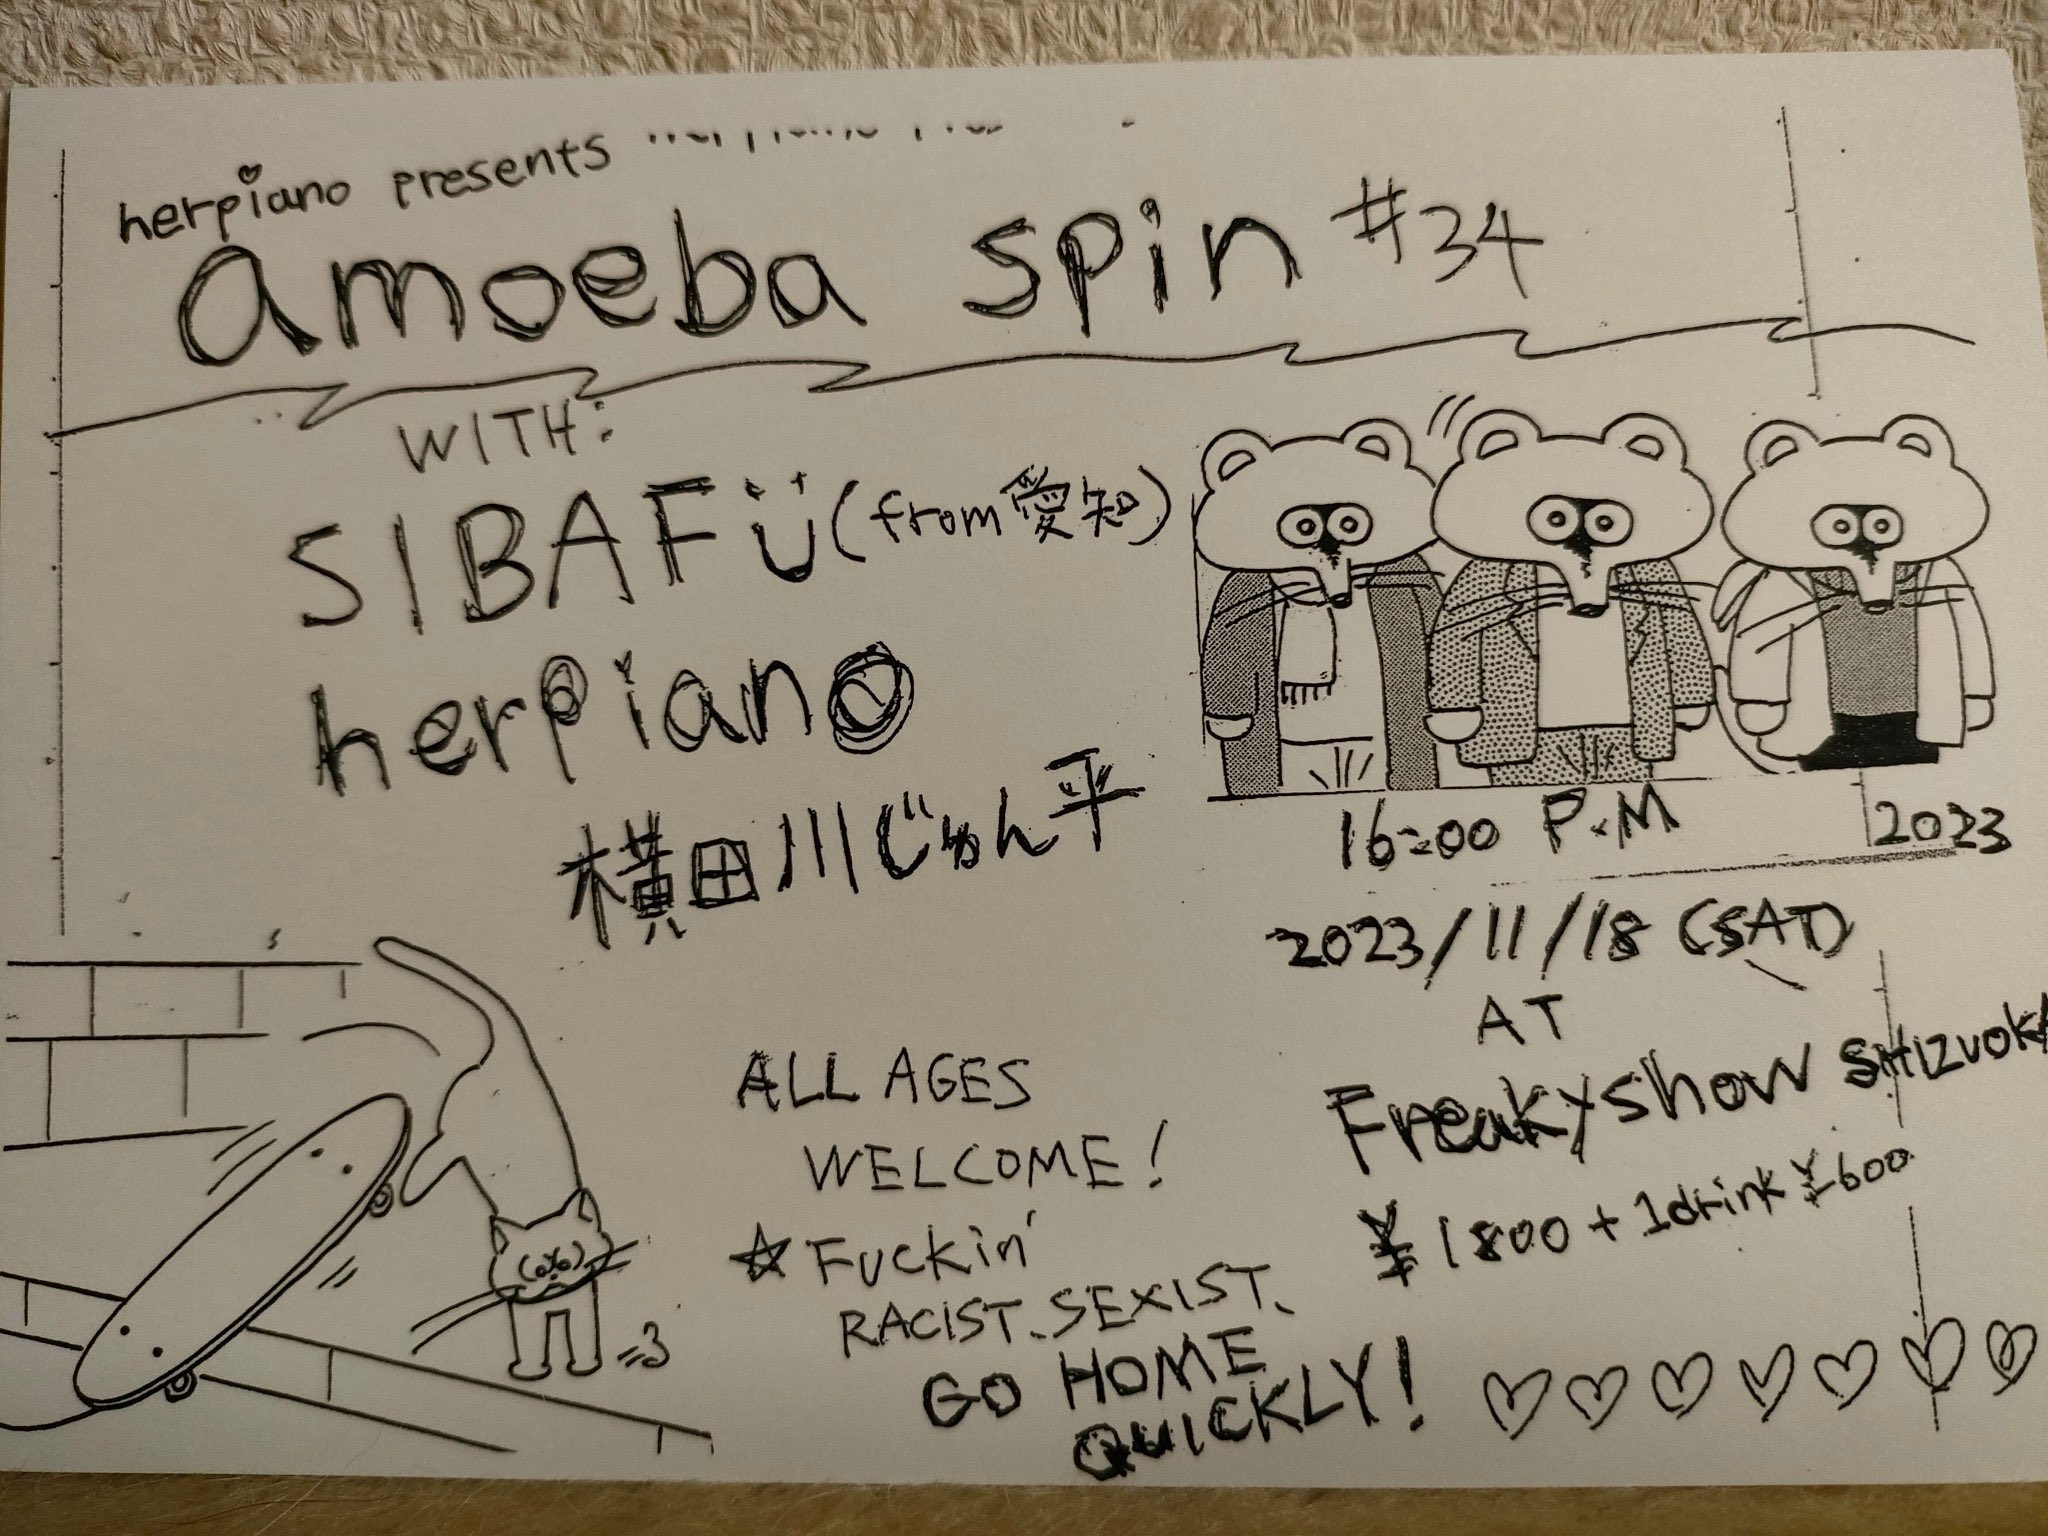 herpiano presents
amoeba spin #34
WITH:
SIBAFÜ (from 愛知)
herpiano
横田川じゅん平
16:00 P.M
2023
2023/11/18 (SAT)
AT
Freakyshow SHIZUOKA
¥1800 + 1drink ¥600
ALL AGES
WELCOME!
☆ Fuckin'
RACIST、SEXIST、
GO HOME
QUICKLY!